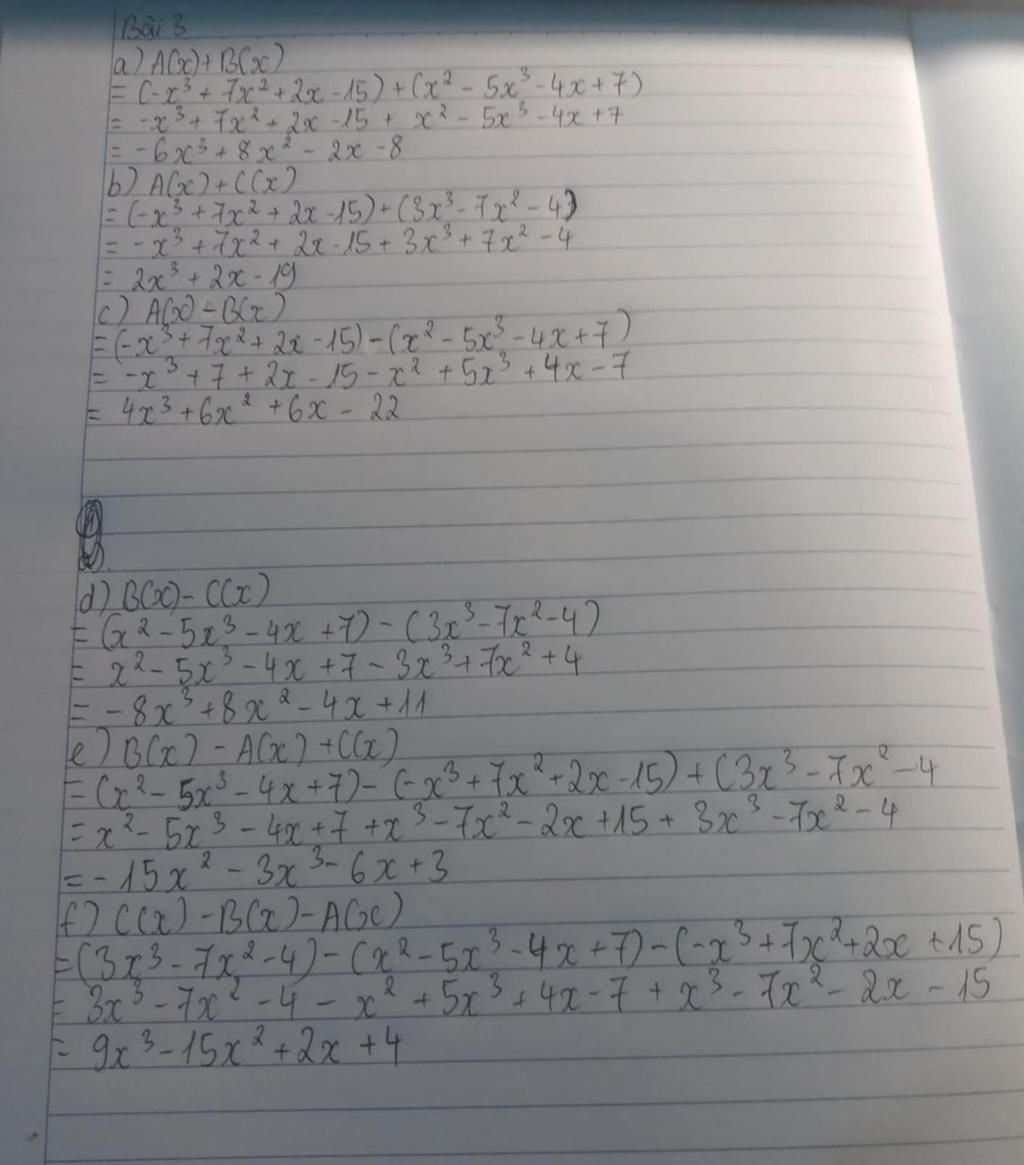 Bài 3
a) A(x) + B(x)
= (-x³ + 7x² + 2x - 15) + (x² - 5x³ - 4x + 7)
= -x³ + 7x² + 2x - 15 + x² - 5x³ - 4x + 7
= -6x³ + 8x² - 2x - 8
b) A(x) + C(x)
= (-x³ + 7x² + 2x - 15) + (3x³ - 7x² - 4)
= -x³ + 7x² + 2x - 15 + 3x³ + 7x² - 4
= 2x³ + 2x - 19
c) A(x) - B(x)
= (-x³ + 7x² + 2x - 15) - (x² - 5x³ - 4x + 7)
= -x³ + 7 + 2x - 15 - x² + 5x³ + 4x - 7
= 4x³ + 6x² + 6x - 22
d) B(x) - C(x)
= (x² - 5x³ - 4x + 7) - (3x³ - 7x² - 4)
= x² - 5x³ - 4x + 7 - 3x³ + 7x² + 4
= -8x³ + 8x² - 4x + 11
e) B(x) - A(x) + C(x)
= (x² - 5x³ - 4x + 7) - (-x³ + 7x² + 2x - 15) + (3x³ - 7x² - 4
= x² - 5x³ - 4x + 7 + x³ - 7x² - 2x + 15 + 3x³ - 7x² - 4
= - 15x² - 3x³ - 6x + 3
f) C(x) - B(x) - A(x)
= (3x³ - 7x² - 4) - (x² - 5x³ - 4x + 7) - (-x³ + 7x² + 2x + 15)
= 3x³ - 7x² - 4 - x² + 5x³ + 4x - 7 + x³ - 7x² - 2x - 15
= 9x³ - 15x² + 2x + 4